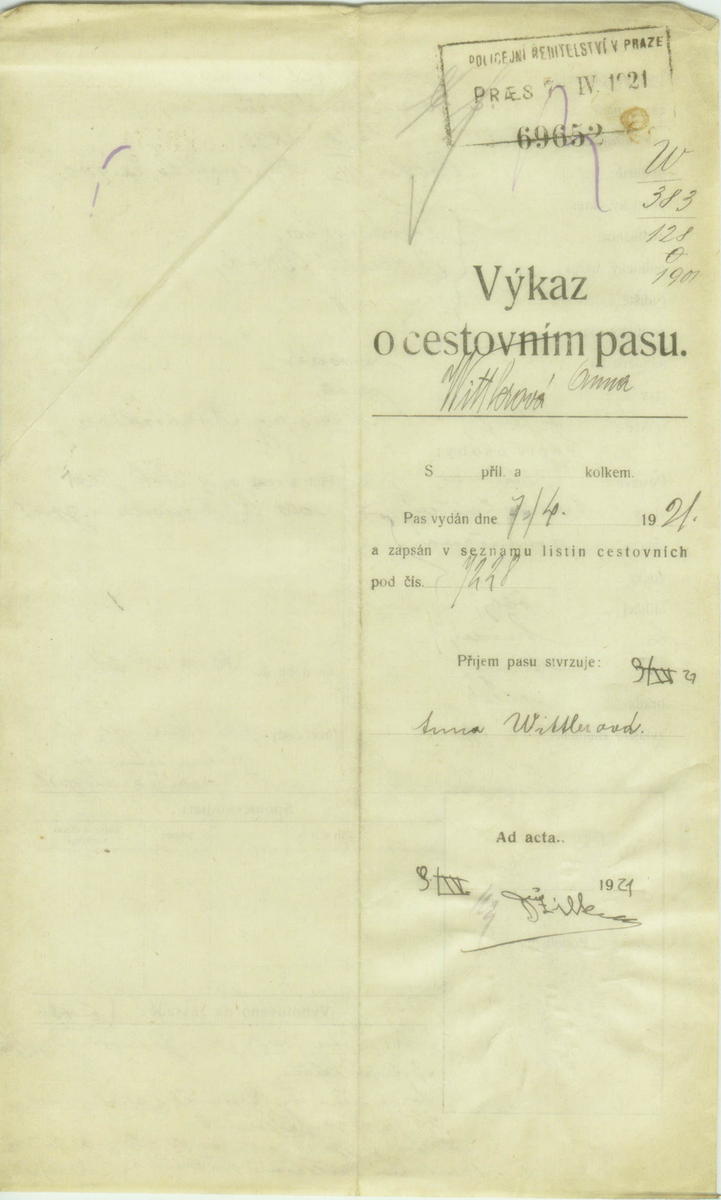 POLICEJNÍ ŘEDITELSTVÍ V PRAZE
PRÆS 7 IV. 1921
69652
W
383
128
1901
Výkaz
o cestovním pasu.
Wittlerová Anna
S příl. a kolkem.
Pas vydán dne 7/4. 1921.
a zapsán v seznamu listin cestovních
pod čís. 7228
Příjem pasu stvrzuje: 9/IV 21
Anna Wittlerová.
Ad acta..
9/IV. 1921